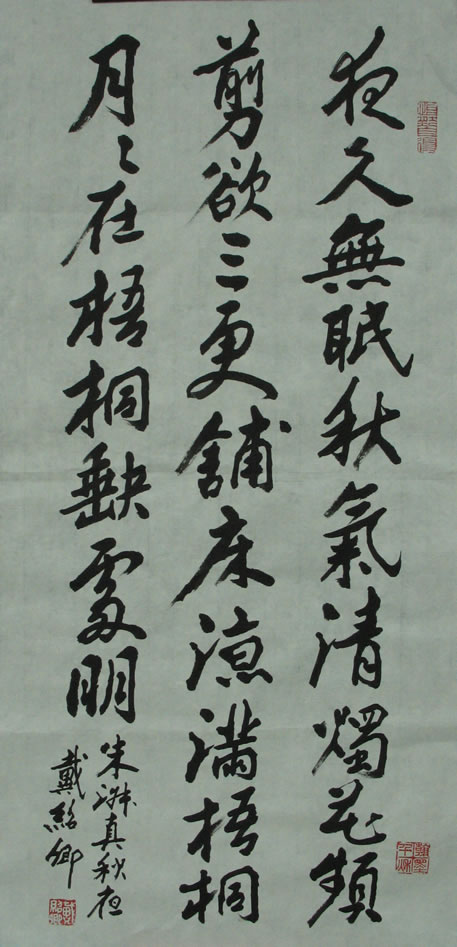 夜久無眠秋氣清燭花頻
剪欲三更舖床涼滿梧桐
月々在梧桐缺處明
朱淑真秋夜
戴紹卿